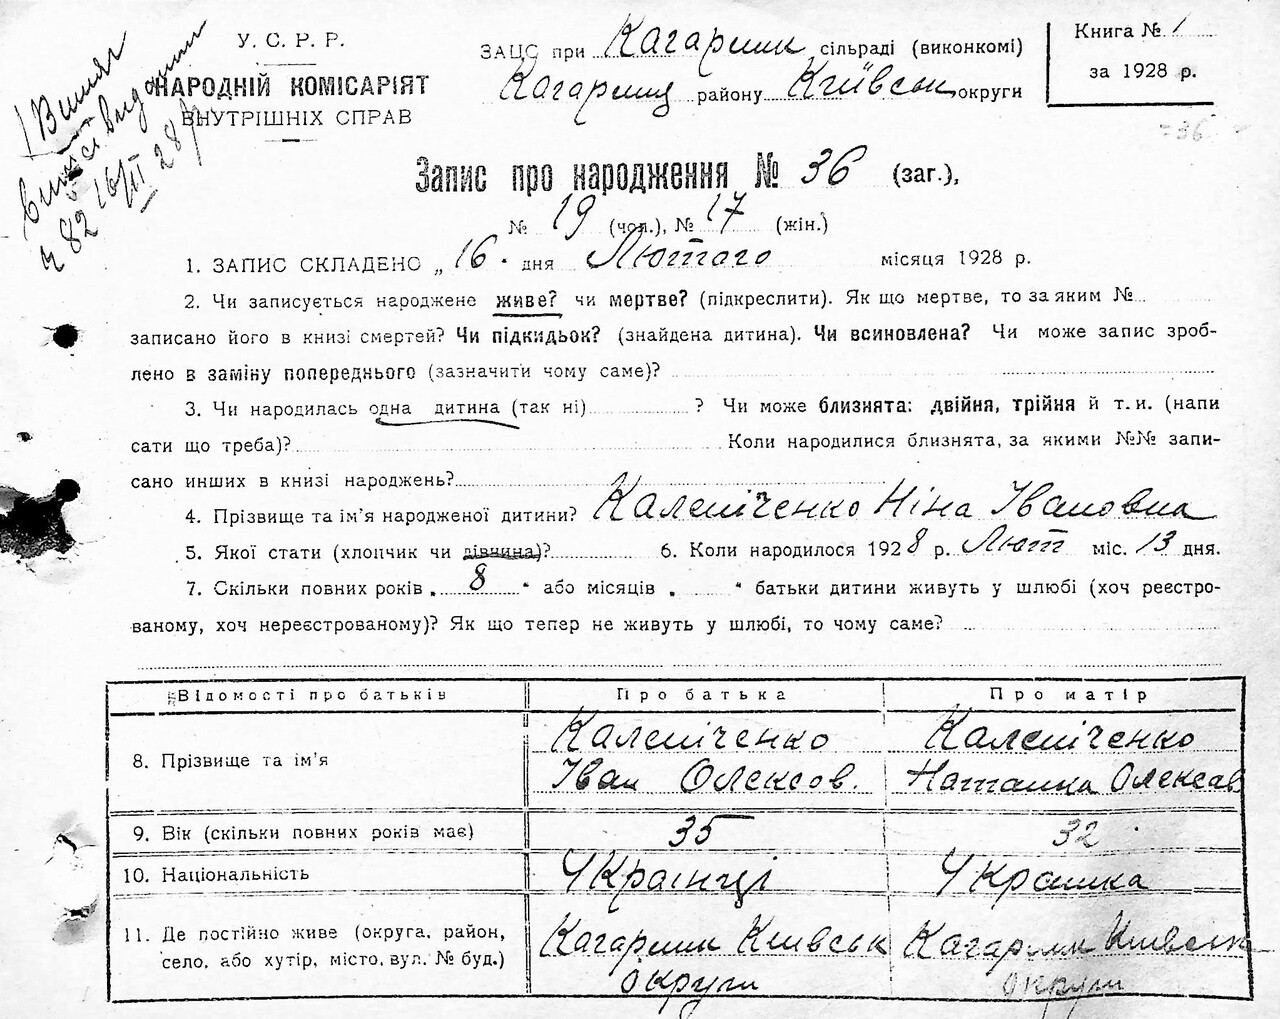 У. С. Р. Р.
НАРОДНІЙ КОМІСАРІЯТ
ВНУТРІШНІХ СПРАВ
ЗАЦС при Кагарлик сільраді (виконкомі)
Кагарлиц району Київськ округи
Книга № 1
за 1928 р.
36
Запис про народження № 36 (заг.),
№ 19 (чол.), № 17 (жін.)
1. ЗАПИС СКЛАДЕНО „ 16 · дня Лютого місяця 1928 р.
2. Чи записується народжене живе? чи мертве? (підкреслити). Як що мертве, то за яким №
записано його в книзі смертей? Чи підкидьок? (знайдена дитина). Чи всиновлена? Чи може запис зроб-
лено в заміну попереднього (зазначити чому саме)?
3. Чи народилась одна дитина (так ні) ? Чи може близнята: двійня, трійня й т. и. (напи
сати що треба)? Коли народилися близнята, за якими №№ запи-
сано инших в книзі народжень?
4. Прізвище та ім'я народженої дитини? Калениченко Ніна Івановна
5. Якої стати (хлопчик чи дівчина)? 6. Коли народилося 1928 р. Лют міс. 13 дня.
7. Скільки повних років „ 8 " або місяців „ " батьки дитини живуть у шлюбі (хоч реєстро-
ваному, хоч нереєстрованому)? Як що тепер не живуть у шлюбі, то чому саме?
Відомості про батьків Про батька Про матір
8. Прізвище та ім'я
Каленіченко Іван Олексов.
Каленіченко Наталка Олексав
9. Вік (скільки повних років має) 35 32
10. Національність Українці Украинка
11. Де постійно живе (округа, район,
село, або хутір, місто, вул. № буд.)
Кагарлик Київськ округи
Кагарлик Київськ округи